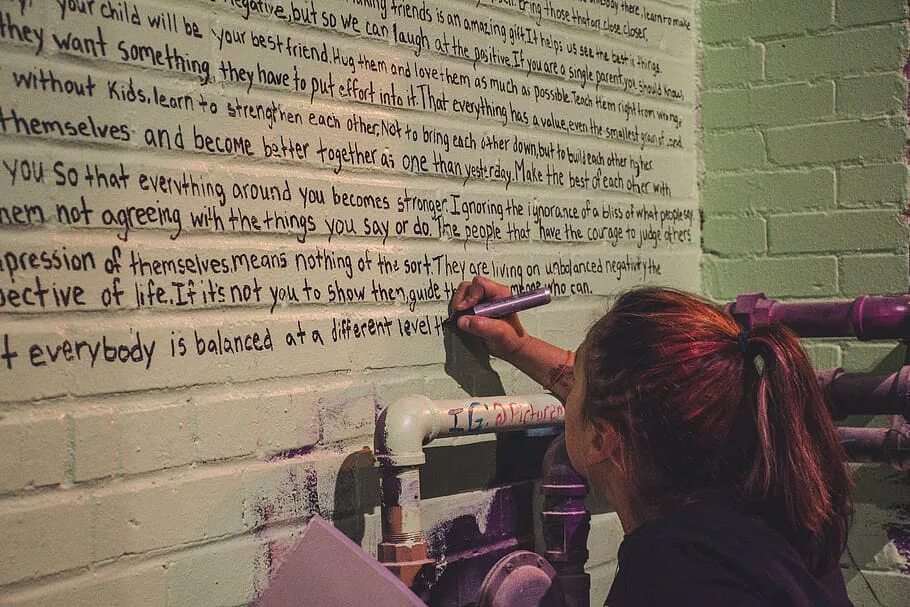 body there, learn to make
self. Bring those that are close closer,
making friends is an amazing gift. It helps us see the best in things.
negative, but so we can laugh at the positive. If you are a single parent, you should know,
your child will be your best friend. Hug them and love them as much as possible. Teach them right from wrong,
they want something, they have to put effort into it. That everything has a value, even the smallest grain of sand.
without Kids, learn to strengthen each other, Not to bring each other down, but to build each other higher
themselves and become better together as one than yesterday. Make the best of each other with
you so that everything around you becomes stronger. Ignoring the ignorance of a bliss of what people say
hem not agreeing with the things you say or do. The people that have the courage to judge others
pression of themselves, means nothing of the sort. They are living on unbalanced negativity the
pective of life. If it's not you to show then, guide who can.
t everybody is balanced at a different level
IG: @Picturen